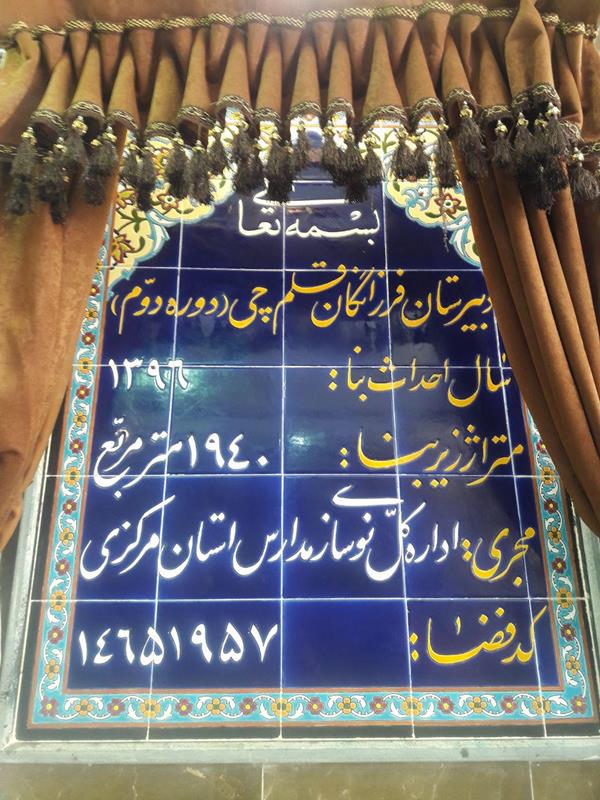 بسمه تعالی
دبیرستان فرزانگان قلم چی (دوره دوّم)
سال احداث بنا: ۱۳۹۶
متراژ زیربنا: ۱۹۴۰ متر مربّع
مجری: اداره کلّ نوسازی مدارس استان مرکزی
کد فضا: ۱۴۶۵۱۹۵۷